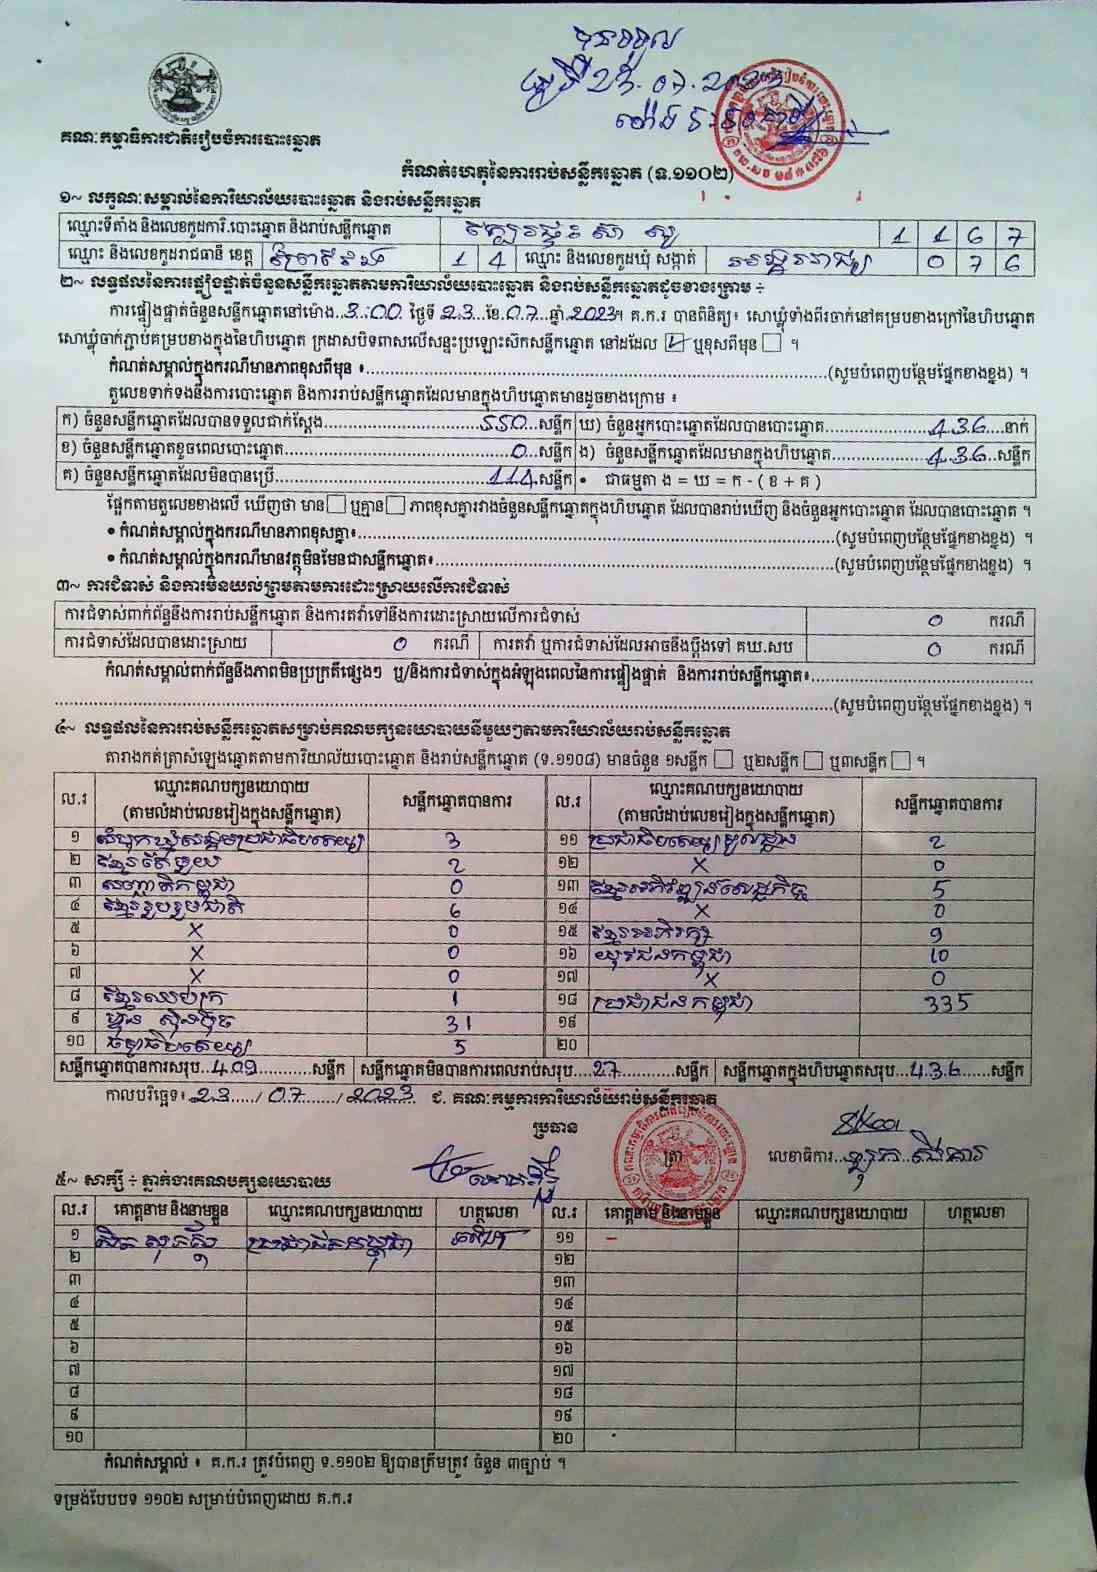 បានទទួល
ថ្ងៃទី 23.07.2023
គណៈកម្មាធិការជាតិរៀបចំការបោះឆ្នោត
កំណត់ហេតុនៃការរាប់សន្លឹកឆ្នោត (ទ.១១០២)
១~ លក្ខណៈសម្គាល់នៃការិយាល័យបោះឆ្នោត និងរាប់សន្លឹកឆ្នោត
ឈ្មោះទីតាំង និងលេខកូដការិ.បោះឆ្នោត និងរាប់សន្លឹកឆ្នោត 1 1 6 7
ឈ្មោះ និងលេខកូដរាជធានី ខេត្ត ព្រៃវែង 1 4 ឈ្មោះ និងលេខកូដឃុំ សង្កាត់ 0 7 6
២~ លទ្ធផលនៃការផ្ទៀងផ្ទាត់ចំនួនសន្លឹកឆ្នោតតាមការិយាល័យបោះឆ្នោត និងរាប់សន្លឹកឆ្នោតដូចខាងក្រោម ÷
ការផ្ទៀងផ្ទាត់ចំនួនសន្លឹកឆ្នោតនៅម៉ោង..3:00 ថ្ងៃទី 23..ខែ.07...ឆ្នាំ.2023។ គ.ក.រ បានពិនិត្យ៖ សោឃ្លុំទាំងពីរចាក់នៅគម្របខាងក្រៅនៃហិបឆ្នោត
សោឃ្លុំចាក់ភ្ជាប់គម្របខាងក្នុងនៃហិបឆ្នោត ក្រដាសបិទពាសលើសន្ទះប្រឡោះស៊កសន្លឹកឆ្នោត នៅដដែល ☑ ឬខុសពីមុន ☐ ។
កំណត់សម្គាល់ក្នុងករណីមានភាពខុសពីមុន ៖..........(សូមបំពេញបន្ថែមផ្នែកខាងខ្នង) ។
តួលេខទាក់ទងនឹងការបោះឆ្នោត និងការរាប់សន្លឹកឆ្នោតដែលមានក្នុងហិបឆ្នោតមានដូចខាងក្រោម ៖
ក) ចំនួនសន្លឹកឆ្នោតដែលបានទទួលជាក់ស្តែង..........550..សន្លឹក ឃ) ចំនួនអ្នកបោះឆ្នោតដែលបានបោះឆ្នោត..........436....នាក់
ខ) ចំនួនសន្លឹកឆ្នោតខូចពេលបោះឆ្នោត..........0..សន្លឹក ង) ចំនួនសន្លឹកឆ្នោតដែលមានក្នុងហិបឆ្នោត..........436..សន្លឹក
គ) ចំនួនសន្លឹកឆ្នោតដែលមិនបានប្រើ..........114.សន្លឹក • ជាធម្មតា ង = ឃ = ក - ( ខ + គ )
ផ្អែកតាមតួលេខខាងលើ ឃើញថា មាន☐ ឬគ្មាន☐ ភាពខុសគ្នារវាងចំនួនសន្លឹកឆ្នោតក្នុងហិបឆ្នោត ដែលបានរាប់ឃើញ និងចំនួនអ្នកបោះឆ្នោត ដែលបានបោះឆ្នោត ។
• កំណត់សម្គាល់ក្នុងករណីមានភាពខុសគ្នា៖..........(សូមបំពេញបន្ថែមផ្នែកខាងខ្នង) ។
• កំណត់សម្គាល់ក្នុងករណីមានវត្ថុមិនមែនជាសន្លឹកឆ្នោត៖..........(សូមបំពេញបន្ថែមផ្នែកខាងខ្នង) ។
៣~ ការជំទាស់ និងការមិនយល់ព្រមតាមការដោះស្រាយលើការជំទាស់
ការជំទាស់ពាក់ព័ន្ធនឹងការរាប់សន្លឹកឆ្នោត និងការតវ៉ាទៅនឹងការដោះស្រាយលើការជំទាស់ 0 ករណី
ការជំទាស់ដែលបានដោះស្រាយ 0 ករណី ការតវ៉ា ឬការជំទាស់ដែលអាចនឹងប្តឹងទៅ គឃ.សប 0 ករណី
កំណត់សម្គាល់ពាក់ព័ន្ធនឹងភាពមិនប្រក្រតីផ្សេងៗ ឬ/និងការជំទាស់ក្នុងអំឡុងពេលនៃការផ្ទៀងផ្ទាត់ និងការរាប់សន្លឹកឆ្នោត៖..........
..........(សូមបំពេញបន្ថែមផ្នែកខាងខ្នង) ។
៤~ លទ្ធផលនៃការរាប់សន្លឹកឆ្នោតសម្រាប់គណបក្សនយោបាយនីមួយៗតាមការិយាល័យរាប់សន្លឹកឆ្នោត
តារាងកត់ត្រាសំឡេងឆ្នោតតាមការិយាល័យបោះឆ្នោត និងរាប់សន្លឹកឆ្នោត (ទ.១១០៨) មានចំនួន ១សន្លឹក ☐ ឬ២សន្លឹក ☐ ឬ៣សន្លឹក ☐ ។
ល.រ ឈ្មោះគណបក្សនយោបាយ (តាមលំដាប់លេខរៀងក្នុងសន្លឹកឆ្នោត) សន្លឹកឆ្នោតបានការ ល.រ ឈ្មោះគណបក្សនយោបាយ (តាមលំដាប់លេខរៀងក្នុងសន្លឹកឆ្នោត) សន្លឹកឆ្នោតបានការ
១ សំបុកឃ្មុំសង្គមប្រជាធិបតេយ្យ 3 ១១ ប្រជាធិបតេយ្យមូលដ្ឋាន 2
២ ខ្មែរតែមួយ 2 ១២ X 0
៣ សញ្ជាតិកម្ពុជា 0 ១៣ ខ្មែរអភិវឌ្ឍន៍សេដ្ឋកិច្ច 5
៤ ខ្មែររួបរួមជាតិ 6 ១៤ X 0
៥ X 0 ១៥ ខ្មែរអភិរក្ស 9
៦ X 0 ១៦ យុវជនកម្ពុជា 10
៧ X 0 ១៧ X 0
៨ ខ្មែរឈប់ក្រ 1 ១៨ ប្រជាជនកម្ពុជា 335
៩ ហ៊្វុនស៊ិនប៉ិច 31 ១៩
១០ ធម្មាធិបតេយ្យ 5 ២០
សន្លឹកឆ្នោតបានការសរុប..409..........សន្លឹក សន្លឹកឆ្នោតមិនបានការពេលរាប់សរុប....27..........សន្លឹក សន្លឹកឆ្នោតក្នុងហិបឆ្នោតសរុប...436......សន្លឹក
កាលបរិច្ឆេទ៖ 23..../ 07....../ 2023 ជ. គណៈកម្មការការិយាល័យរាប់សន្លឹកឆ្នោត
ប្រធាន ត្រា លេខាធិការ
៥~ សាក្សី ÷ ភ្នាក់ងារគណបក្សនយោបាយ
ល.រ គោត្តនាម និងនាមខ្លួន ឈ្មោះគណបក្សនយោបាយ ហត្ថលេខា ល.រ គោត្តនាម និងនាមខ្លួន ឈ្មោះគណបក្សនយោបាយ ហត្ថលេខា
១ ប្រជាជនកម្ពុជា ១១ –
២ ១២
៣ ១៣
៤ ១៤
៥ ១៥
៦ ១៦
៧ ១៧
៨ ១៨
៩ ១៩
១០ ២០
កំណត់សម្គាល់ ៖ គ.ក.រ ត្រូវបំពេញ ទ.១១០២ ឱ្យបានត្រឹមត្រូវ ចំនួន ៣ច្បាប់ ។
ទម្រង់បែបបទ ១១០២ សម្រាប់បំពេញដោយ គ.ក.រ